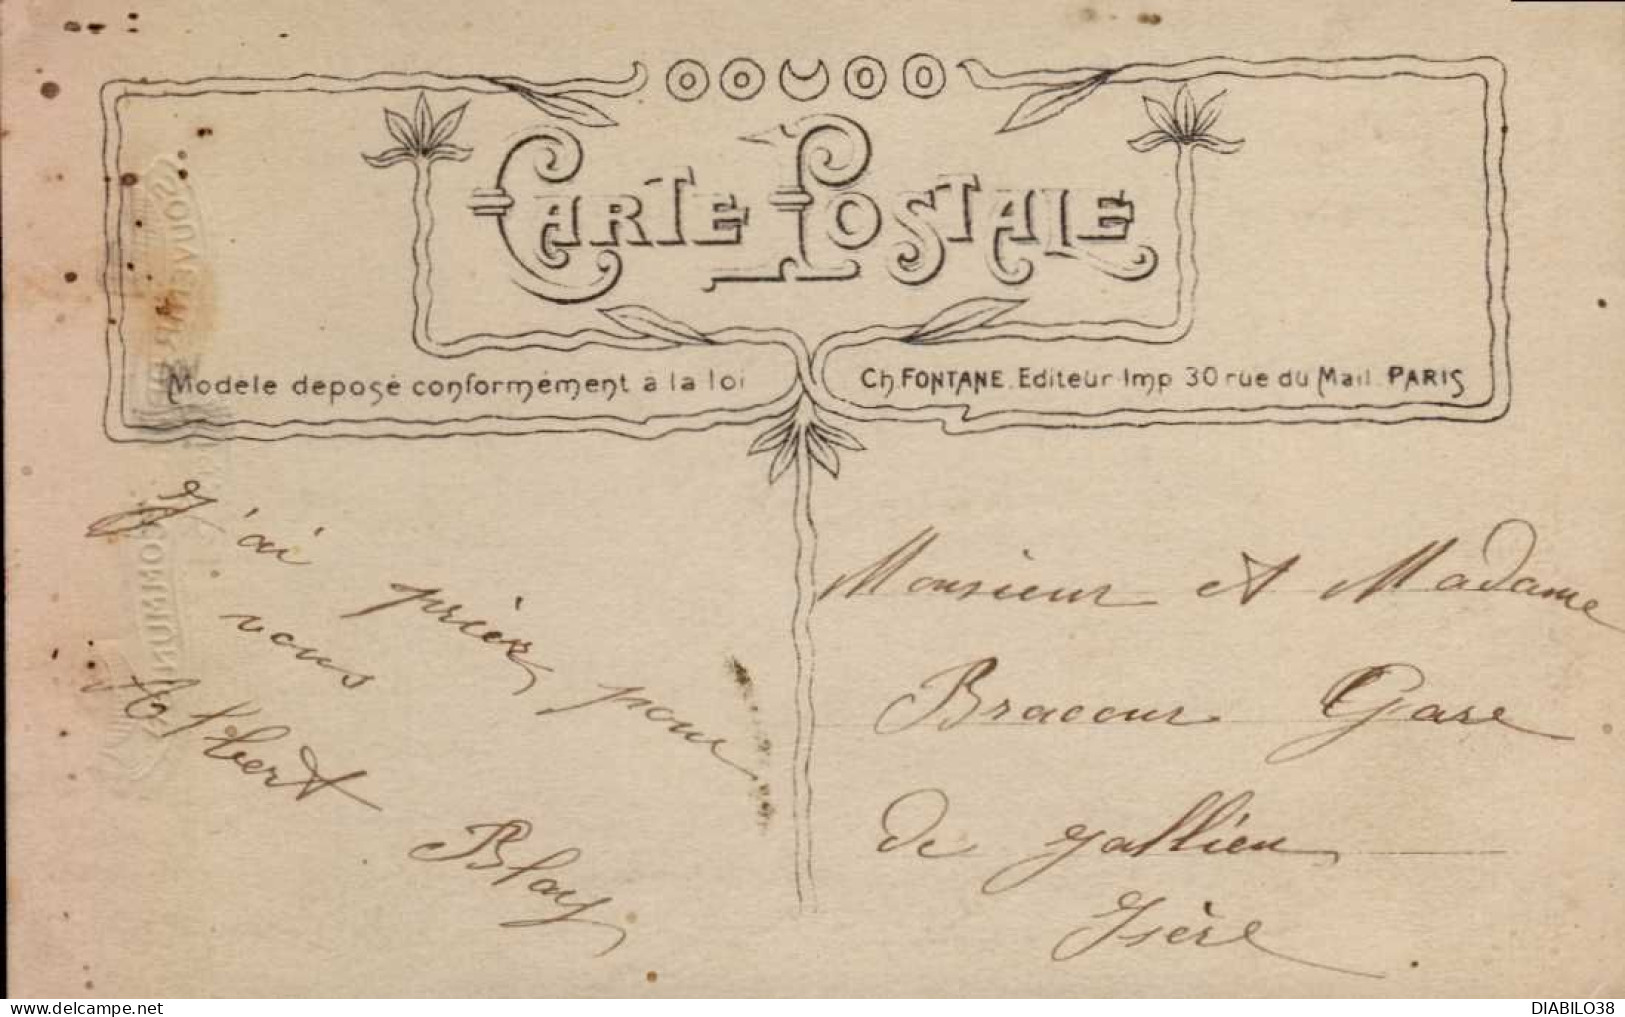 CARTE POSTALE
Modèle déposé conformément à la loi
Ch. FONTANE. Editeur-Imp 30 rue du Mail. PARIS
J'ai priéz pour
vous
Albert Blay
Monsieur et Madame
Bracour Gare
de Jallieu
Isère
SOUVENIR DE
COMMUNION
DIABILO38